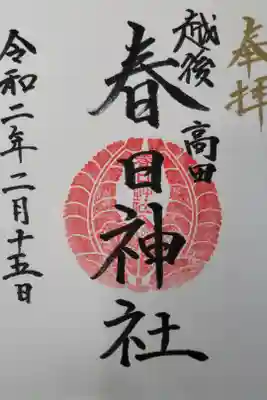 奉拝
越後 高田
春日神社
令和二年二月十五日